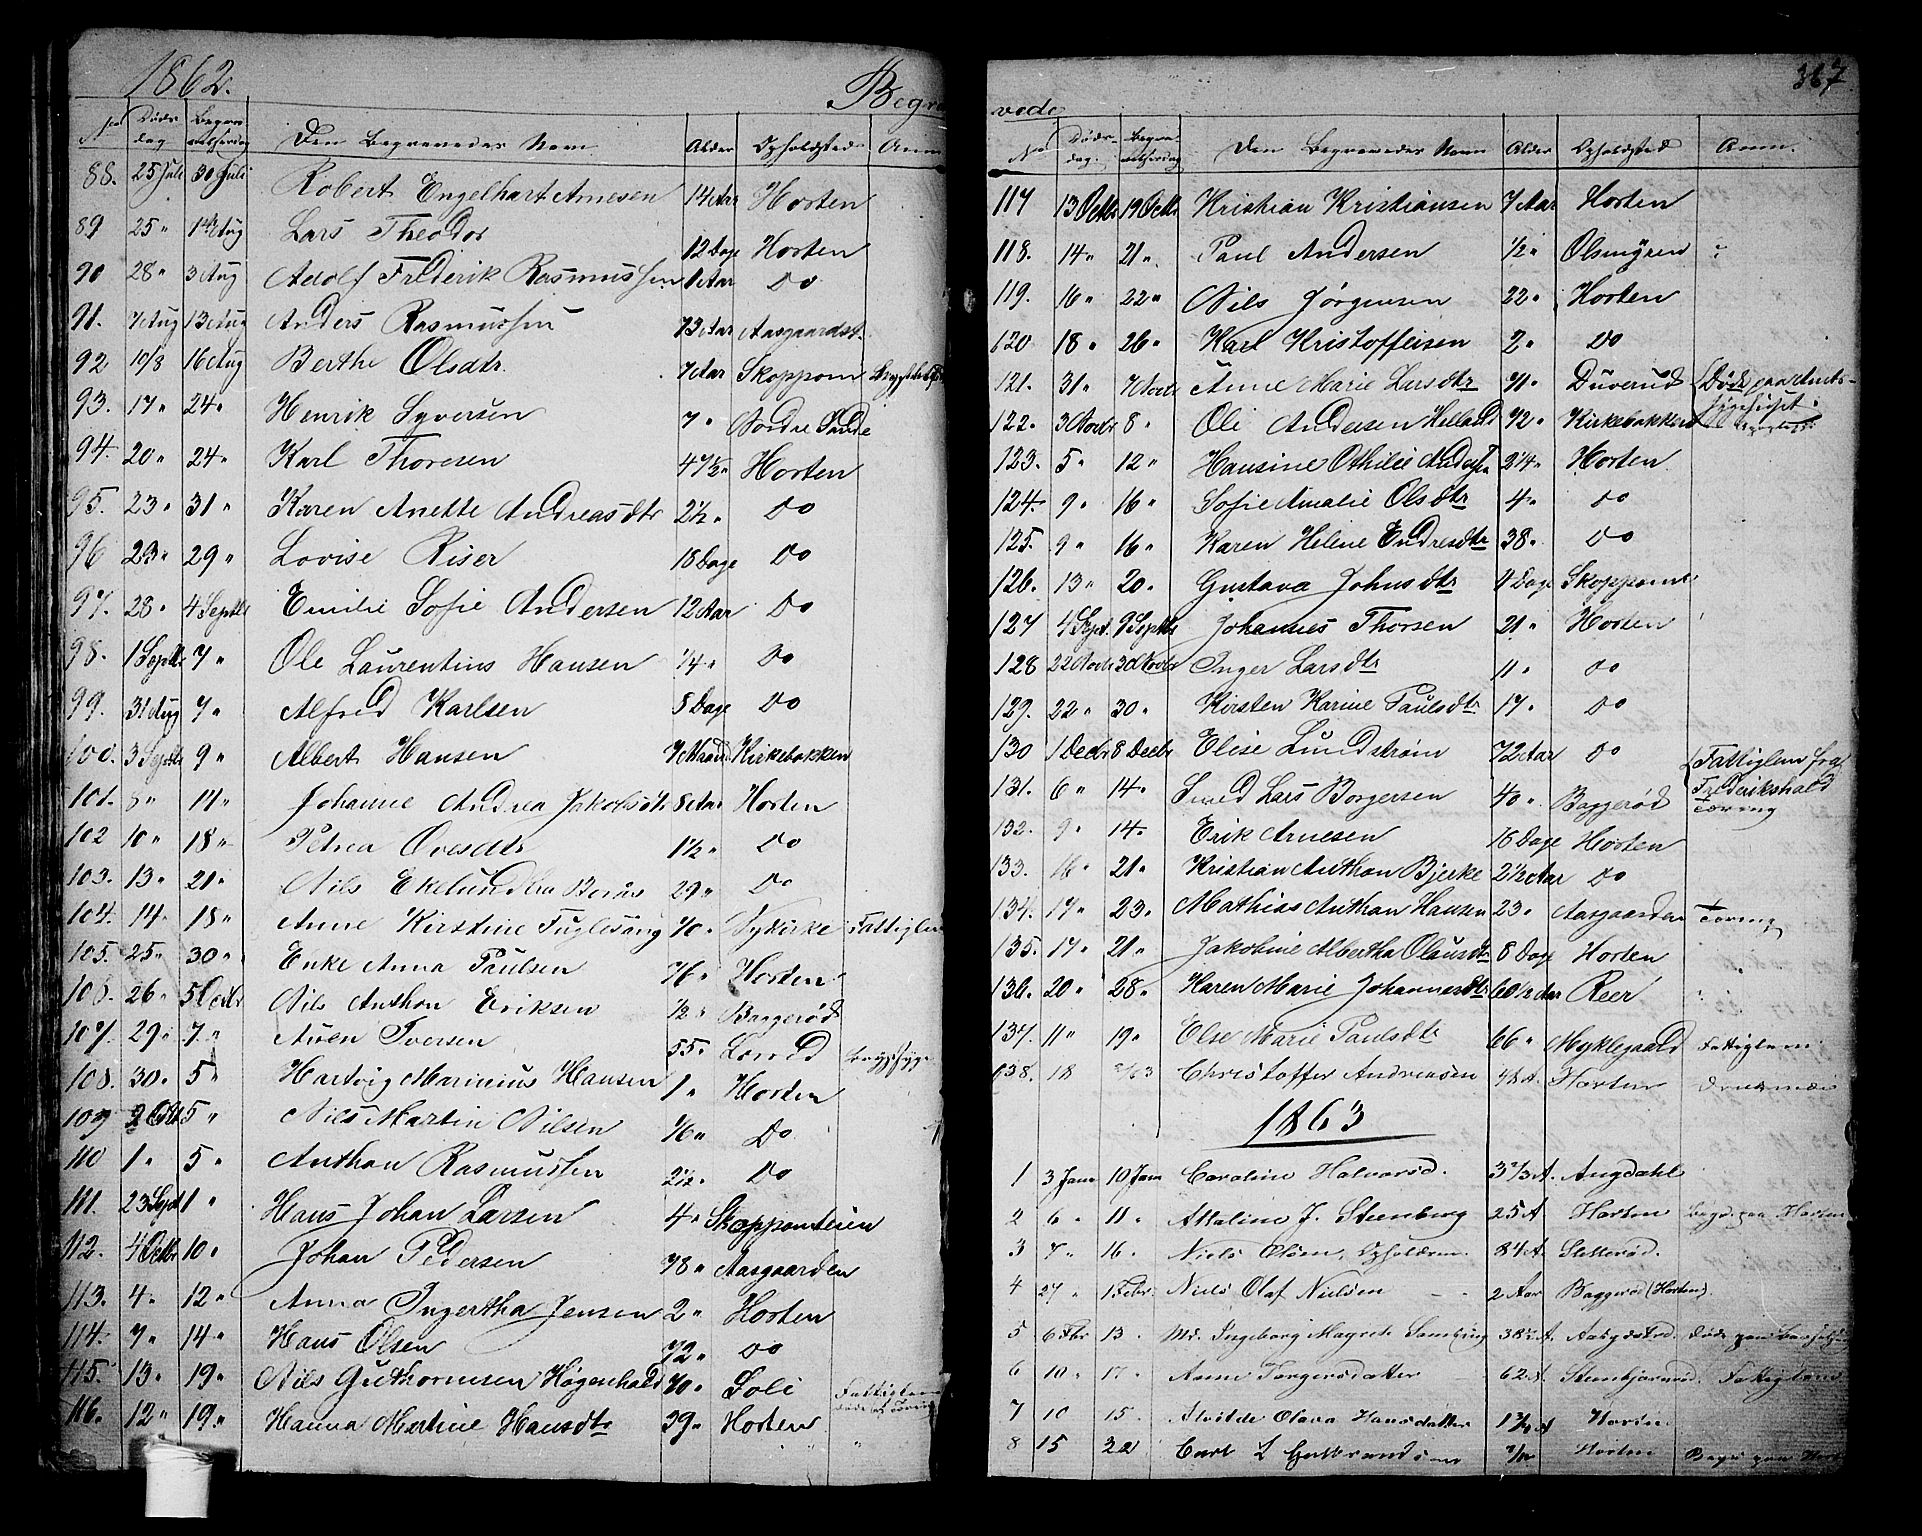 1862.
Begra
No Døds dag Begravelsesdag Den Begravedes Navn Alder Opholdsted Anm
88. 25 Juli 30 Juli Robert Engelhart Arnesen 14 Aar Horten
89 25 " 1ste Aug Lars Theodor 12 Dage Horten
90 28 " 3 Aug Adolf Frederik Rasmussen 1 Aar Do
91. 7 Aug 13 Aug Anders Rasmussen 73 Aar Aasgaardst.
92 10/8 16 Aug Berthe Olsdtr. 7 Aar Skoppom
93. 17 " 24 " Henrik Syversen 7 " Nordre Sande
94. 20 " 24 " Karl Thoresen 47½ " Horten
95. 23 " 31 " Karen Anette Andreasdtr 2½ " Do
96 23 " 29 " Lovise Riser 18 Dage Do
97. 28 " 4 Septbr Emilie Sofie Andersen 12 Aar Do
98. 1 Septbr 7 " Ole Laurentius Hansen ¼ " Do
99. 31 Aug 7 " Alfred Karlsen 8 Dage Do
100. 3 Septbr 9 " Albert Hansen 7 Maand Kirkebakken
101. 8 " 14 " Johanne Andrea Jakobsdtr. 8 Aar Horten
102 10 " 18 " Petrea Ovesdtr 1½ " Do
103. 13 " 21 " Nils Ekelund fra Borås 29 " Do
104. 14 " 18 " Anne Kirstine Fuglesang 70 " Nykirke Fattiglem
105. 25 " 30 " Enke Anna Paulsen 76 " Horten
106. 26 " 5 Octbr Nils Anthon Eriksen ½ " Baggerød
107. 29 " 7 " Auen Iversen 55 "
108. 30 " 5 " Hartvig Marinius Hansen 1 " Horten
109 2 Oct 5 " Nils Martin Nilsen 76 " Do
110 1 " 5 " Anthon Rasmussen 2½ " Do
111. 23 Sept 1 " Hans Johan Larsen 4 " Skoppomteien
112. 4 Octbr 10 " Johan Pedersen 78 " Aasgaarden
113. 4 " 12 " Anna Ingertha Jensen 2 " Horten
114. 7 " 14 " Hans Olsen 72 " Do
115. 13 " 19 " Nils Guthormsen Høgenhald 70 " Soli Fattiglem
116. 12 " 19 " Hanna Martine Hansdtr 39 " Horten
367
vede
No Døds- dag. Begravelsesdag Den Begravedes Navn Alder Opholdsted Anm.
117 13 Octbr 19 Octbr Kristian Kristiansen 7 Aar Horten
118. 14 " 21 " Paul Andersen ½ " Olsmyren
119. 16 " 22 " Nils Jørgensen 22 " Horten
120 18 " 26 " Karl Kristoffersen 2 " Do
121. 31 " 7 Novbr Anne Marie Larsdtr 71 " Duverud
122. 3 Novbr 8 " Ole Andersen Helland 72 " Kirkebakken
123. 5 " 12 " Hansine Othilie Andersen 2¼ " Horten
124. 9 " 16 " Sofie Amalie Olsdtr 4 " Do
125. 9 " 16 " Karen Heline Endresdtr 38 " Do
126. 13 " 20 " Gustava Johnsdtr 4 Dage Skoppom
127 4 Sept. 9 Septbr Johannes Thorsen 21 " Horten
128 22 Novbr 30 Novbr Inger Larsdtr 11 " Do
129. 22 " 30 " Kirsten Karine Paulsdtr 17 " Do
130 1 Decbr 8 Decbr Elise Lundstrøm 72 Aar Do Fattiglem fra
131. 6 " 14 " Smed Lars Borgersen 40 " Baggerød Frederikshald Tæring
132. 9 " 14 " Erik Arnesen 16 Dage Horten
133. 16 " 21 " Kristian Anthon Bjerke 2½ Aar Do
134. 17 " 23 " Mathias Anthon Hansen 23 " Aasgaarden Tæring
135. 17 " 21 " Jakobine Albertha Olausdtr 8 Dage Horten
136. 20 " 28 " Karen Marie Johannesdtr 60½ Aar Reer
137. 11 " 19 " Else Marie Paulsdtr 66 " Myklegaald Fattiglem
138. 18 Christoffer Andreasen 48 A. Horten
1863
1 3 Janu 10 Jan Caroline Halvorsd. A. Angdahl
2 6 " 11 " Attaline J. Steenberg 25 A Horten Begr. paa Horten
3 7 " 16 " Niels Olsen, 84 A. Sletterød.
4 27 " 1 Febr. Niels Olaf Nielsen 2 Aar Baggerød (Horten).
5 6 Fbr 13 " Md. Ingeborg Magrete 38½ A. Aasgdstrd. Døde paa
6 10 " 17 " Anne Torgersdatter 62 A Fattiglem
7 10 15 " Alvilde Olava Hansdatter A Horten
8 15 22 Carl L Horten Begr paa Horten